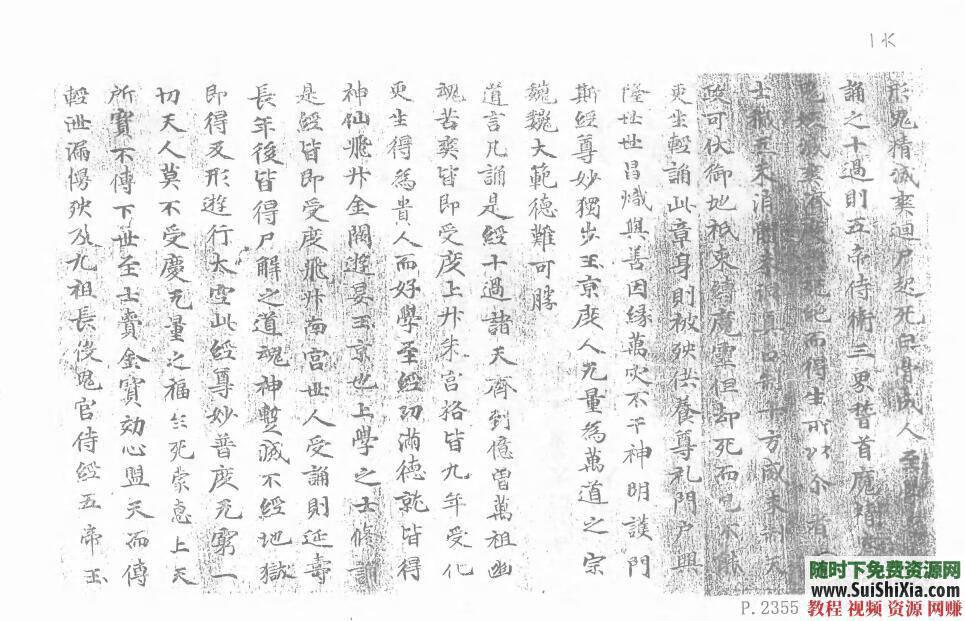 形鬼精滅爽迴尸起死白骨成人至學之士
誦之十過則五帝侍衛三界稽首魔精
鬼妖滅爽濟度垂絕而得生所以尒者
土氣五未消體未洞真召制十方威未制天
政可伏御地祇束縛魔靈但却死而已不能
更生輕誦此章身則被殃供養尊礼門戶興
隆世世昌熾與善因緣萬災不干神明護門
斯經尊妙獨步玉京度人无量為萬道之宗
巍巍大範德難可勝
道言凡誦是經十過諸天齊到億曾萬祖幽
魂苦爽皆即受度上升朱宮格皆九年受化
更生得為貴人而好學至經功滿德就皆得
神仙飛升金闕遊晏玉京也上學之士修誦
是經皆即受度飛升南宮世人受誦則延壽
長年後皆得尸解之道魂神暫滅不經地獄
即得反形遊行太空此經尊妙普度无窮一
切天人莫不受慶无量之福生死蒙惠上天
所寶不傳下世至士賷金寶効心盟天而傳
輕世漏慢殃及九祖長役鬼官侍經五帝玉
P.2355
随时下免费资源网
www.SuiShiXia.com
教程 视频 资源 网赚